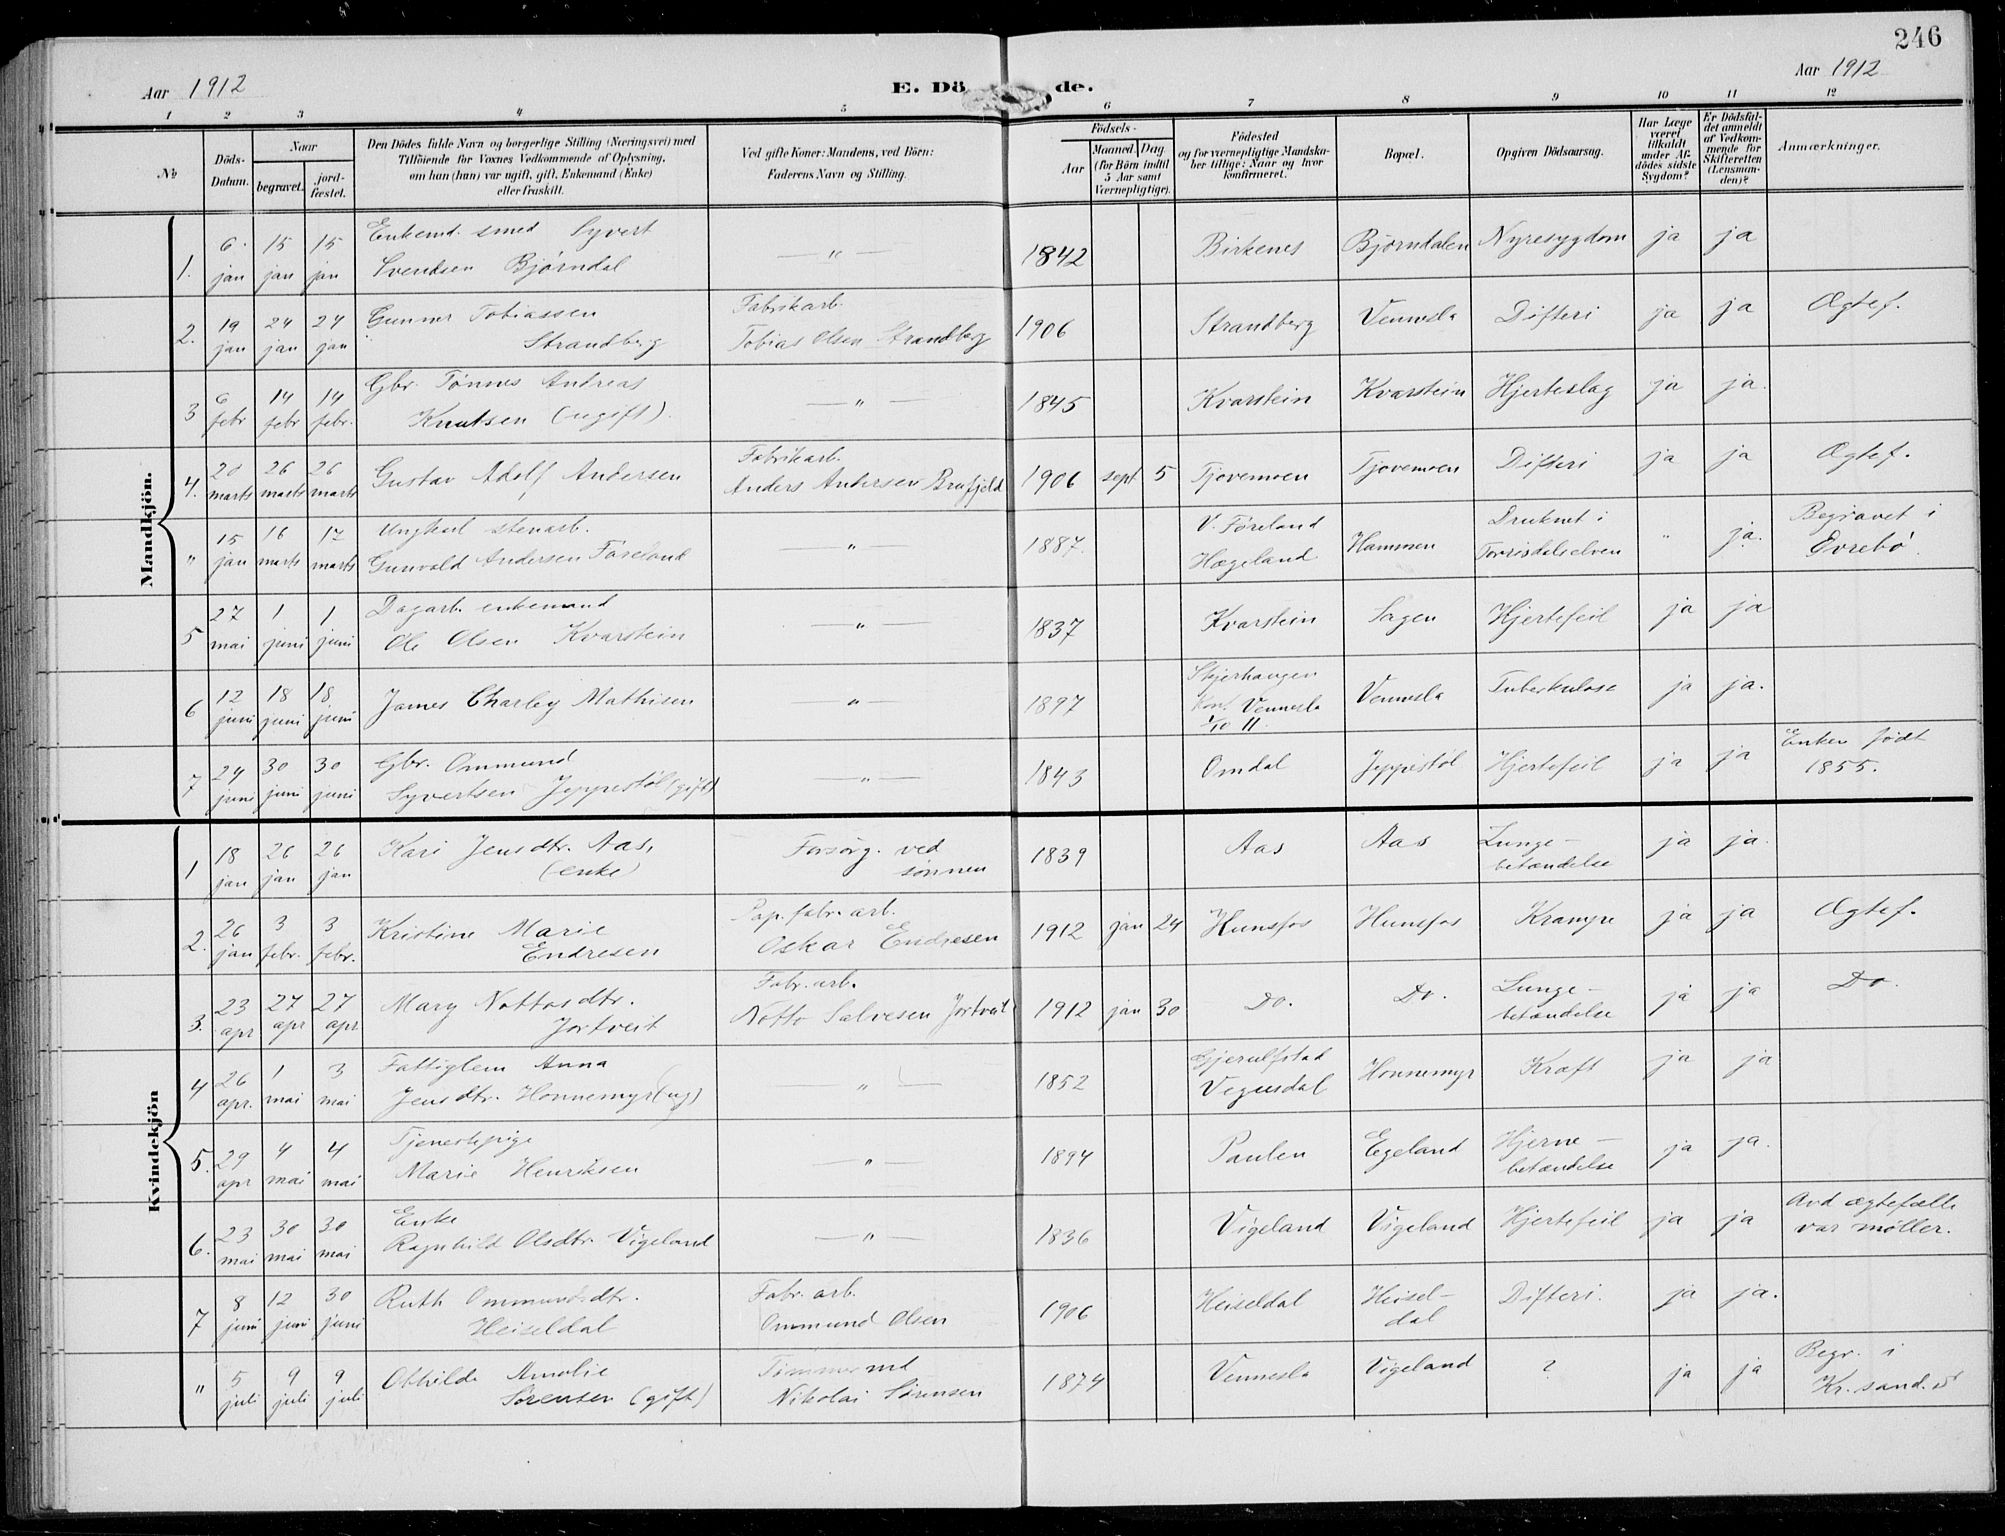 246
Aar 1912
E. Dö de.
Aar 1912
1 2 3 4 5 6 7 8 9 10 11 12
№
Döds-Datum.
Naar
begravet.
jord-fæstet.
Den Dödes fulde Navn og borgerlige Stilling (Næringsvei) med
Tilföiende for Voxnes Vedkommende af Oplysning,
om han (hun) var ugift, gift, Enkemand (Enke)
eller fraskilt.
Ved gifte Koner: Mandens, ved Börn:
Faderens Navn og Stilling.
Födsels-
Aar
Maaned. Dag.
(for Börn indtil
5 Aar samt
Værnepligtige).
Födested
og for værnepligtige Mandska-
ber tillige: Naar og hvor
konfirmeret.
Bopæl.
Opgiven Dödsaarsag.
Har Læge
været
tilkaldt
under Af-
dödes sidste
Sygdom?
Er Dödsfal-
det anmeldt
af Vedkom-
mende for
Skifteretten
(Lensman-
den)?
Anmærkninger.
Mandkjön.
1. 6. jan 15 jan 15 jan Enkemd. smed Syvert
Svendsen Bjørndal — " — 1842 Birkenes Bjørndalen Nyresygdom ja ja
2. 19 jan 24 jan 24 jan Gunnar Tobiassen
Strandberg Fabrikarb.
Tobias Olsen Strandberg 1906 Strandberg Vennesla Difteri ja ja Ægtef.
3 6 febr 14 febr 14 febr. Gbr. Tønnes Andreas
Knutsen (ugift). — " — 1845 Kvarstein Kvarstein Hjerteslag ja ja.
4. 20 marts 26 marts 26 marts Gustav Adolf Andersen Fabrikarb.
Anders Andersen Brufjeld 1906 sept. 5 Tjovemoen Tjovemoen Difteri ja ja Ægtef.
" 15 jan 16 marts 17 marts Ungkarl stenarb.
Gunvald Andersen Føreland — " — 1887. V. Føreland
Hægeland Hammen Druknet i
Torrisdalselven " ja. Begravet i
Øvrebø.
5 27 mai 1 juni 1 juni Dagarb. enkemand
Ole Olsen Kvarstein — " — 1837 Kvarstein Sagen Hjertefeil ja ja
6 12 juni 18 juni 18 juni James Charley Mathisen — " — 1897 Stjerhaugen
Konf. Vennesla
1/10 11. Vennesla Tuberkulose ja ja.
7 24 juni 30 juni 30 juni Gbr. Ommund
Syvertsen Jeppestøl (gift) — " — 1843 Omdal Jeppestøl Hjertefeil ja ja Enken født
1855.
Kvindekjön
1 18 jan 26 jan 26 jan Kari Jensdtr. Aas,
(enke) Forsørg. ved
sønnen 1839 Aas Aas Lunge-
betændelse ja ja.
2. 26 jan 3 febr. 3 febr. Kristine Marie
Endresen Pap. fabr. arb.
Oskar Endresen 1912 jan 24 Hunsfos Hunsfos Krampe ja ja Ægtef.
3. 23 apr 27 apr 27 apr Mary Nottosdtr.
Jortveit Fabr. arb.
Notto Salvesen Jortveit 1912 jan 30 Do. Do. Lunge-
betændelse ja ja Do.
4 26 apr. 1 mai 3 mai Fattiglem Anna
Jensdtr. Honnemyr (ug) " 1852 Gjerulfstad
Vegusdal Honnemyr Kræft ja ja
5. 29 apr 4 mai 4 mai Tjenestepige
Marie Henriksen — " — 1894 Paulen Egeland Hjerne-
betændelse ja ja.
6. 23 mai 30 mai 30 mai Enke
Ragnhild Olsdtr. Vigeland — " — 1836 Vigeland Vigeland Hjertefeil ja ja Avd ægtefælle
var møller.
7 8 juni 12 juni 30 juni Ruth Ommundsdtr.
Heiseldal Fabr. arb.
Ommund Olsen 1906 Heiseldal Heisel-
dal Difteri. ja ja.
" 5 juli 9 juli 9 juli Othilde Amalie
Sørensen (gift) Tømmermd
Nikolai Sørensen 1874 Vennesla Vigeland ? ja ja Begr. i
Kr.sand.